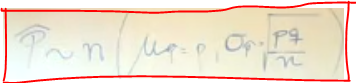 p̂ ~ n ( μp = p, σp = √(pq/n) )